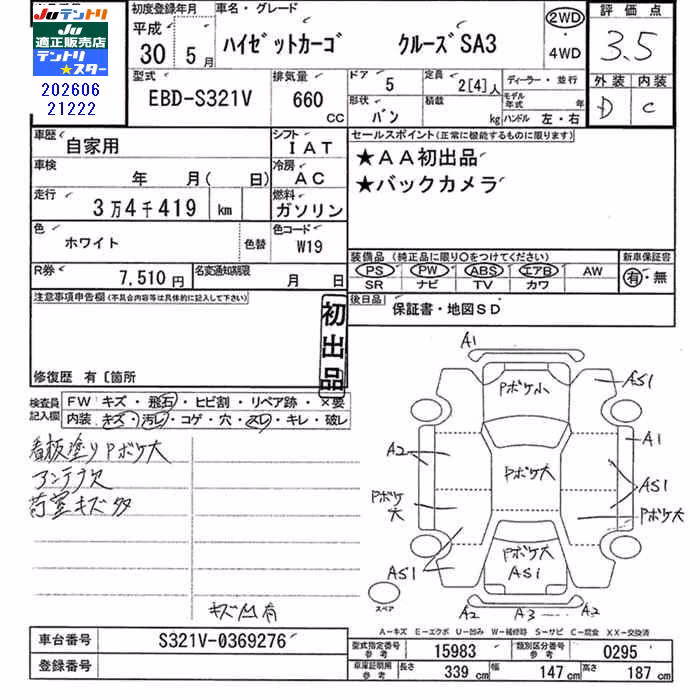 JUテントリ
JU
適正販売店
テントリ
★スター
202606
21222
初度登録年月
平成
30 5月
車名・グレード
ハイゼットカーゴ クルーズSA3
2WD
・
4WD
評価点
3.5
外装 内装
D C
型式
EBD-S321V
排気量
660
CC
ドア
5
形状
バン
定員
2[4]人
積載
kg
ディーラー・並行
モデル年式 年
ハンドル 左・右
車歴
自家用
シフト
IAT
車検
年 月( 日)
冷房
AC
走行
3万4千419 km
燃料
ガソリン
色
ホワイト
色替
色コード
W19
R券
7,510円
名変通知期限
月 日
セールスポイント(正常に機能するものに限ります)
★AA初出品
★バックカメラ
装備品(純正品に限り○をつけてください)
PS PW ABS エアB AW
SR ナビ TV カワ
新車保証書
有・無
後日品
保証書・地図SD
注意事項申告欄(不具合内容等は具体的に記入して下さい)
初出品
修復歴 有〔箇所
検査員
記入欄
FW キズ・飛石・ヒビ割・リペア跡・×要
内装 キズ・汚レ・コゲ・穴・スレ・キレ・破レ
看板塗りPボケ大
アンテナ欠
荷室キズ多
キズ凹有
A1
Pボケ小
AS1
A2
A1
Pボケ大
AS1
Pボケ大
Pボケ大
Pボケ大
AS1
AS1
スペア
A2 A3 A2
A-キズ E-エクボ U-凹み W-補修跡 S-サビ C-腐食 XX-交換済
車台番号
S321V-0369276
登録番号
型式指定番号
参考
15983
類別区分番号
参考
0295
車庫証明用
参考
長さ 339cm 幅 147cm 高さ 187cm